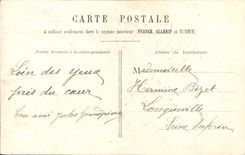 CARTE POSTALE
à utiliser seulement dans le régime intérieur (FRANCE, ALGÉRIE et TUNISIE)
Partie réservée à la correspondance
Adresse du Destinataire
Loin des yeux
près du cœur
Ton ami Jules
Mademoiselle
Hermine Bizet
Longueville
Seine Inférieure